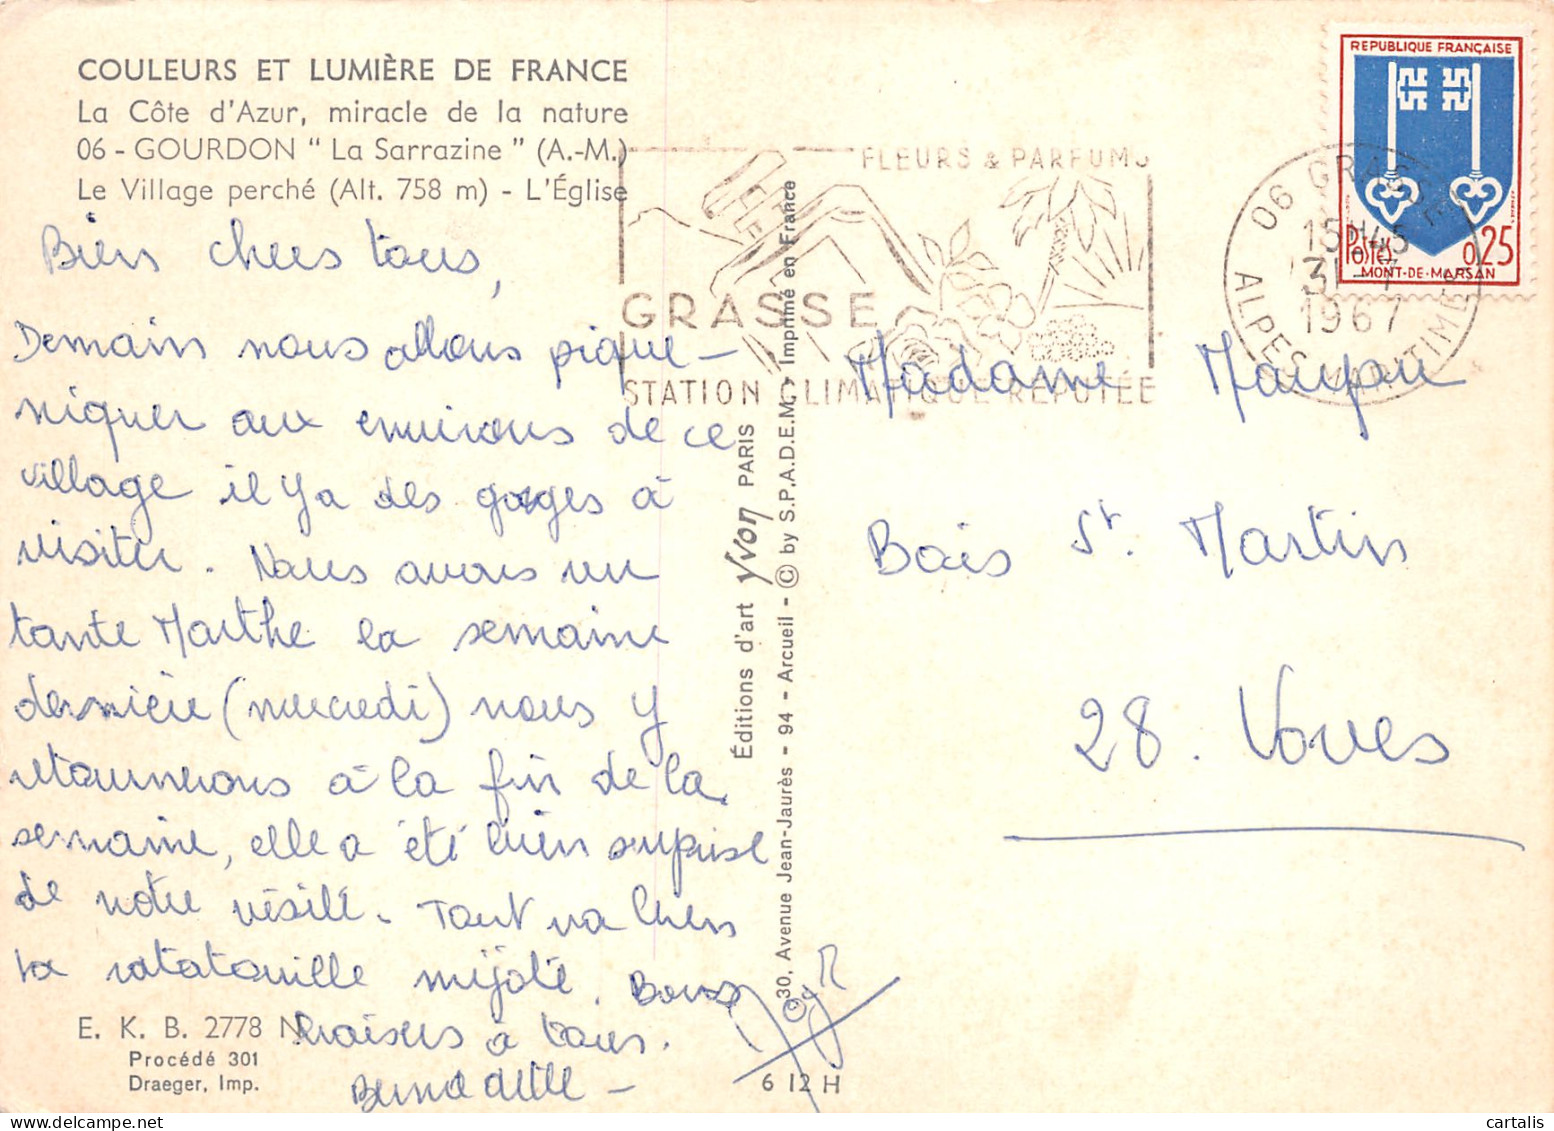 COULEURS ET LUMIÈRE DE FRANCE
La Côte d'Azur, miracle de la nature
06 - GOURDON " La Sarrazine " (A.-M.)
Le Village perché (Alt. 758 m) - L'Église
Bien chers tous,
Demain nous allons pique-
niquer aux environs de ce
village il y a des gorges à
visiter. Nous avons vu
tante Marthe la semaine
dernière (mercredi) nous y
retournerons à la fin de la
semaine, elle a été bien surprise
de notre visite. Tout va bien
la ratatouille mijote. Bons
baisers à tous.
Bernadette -
E. K. B. 2778 N
Procédé 301
Draeger, Imp.
Éditions d'art Yvon PARIS
30, Avenue Jean-Jaurès - 94 - Arcueil - © by S.P.A.D.E.M. - Imprimé en France
6 12 H
FLEURS & PARFUMS
GRASSE
STATION CLIMATIQUE RÉPUTÉE
06 GRASSE
15H45
31-7
1967
ALPES MARITIMES
REPUBLIQUE FRANÇAISE
Postes 0,25
MONT-DE-MARSAN
Madame Maupu
Bois St. Martin
28. Voves
cartalis